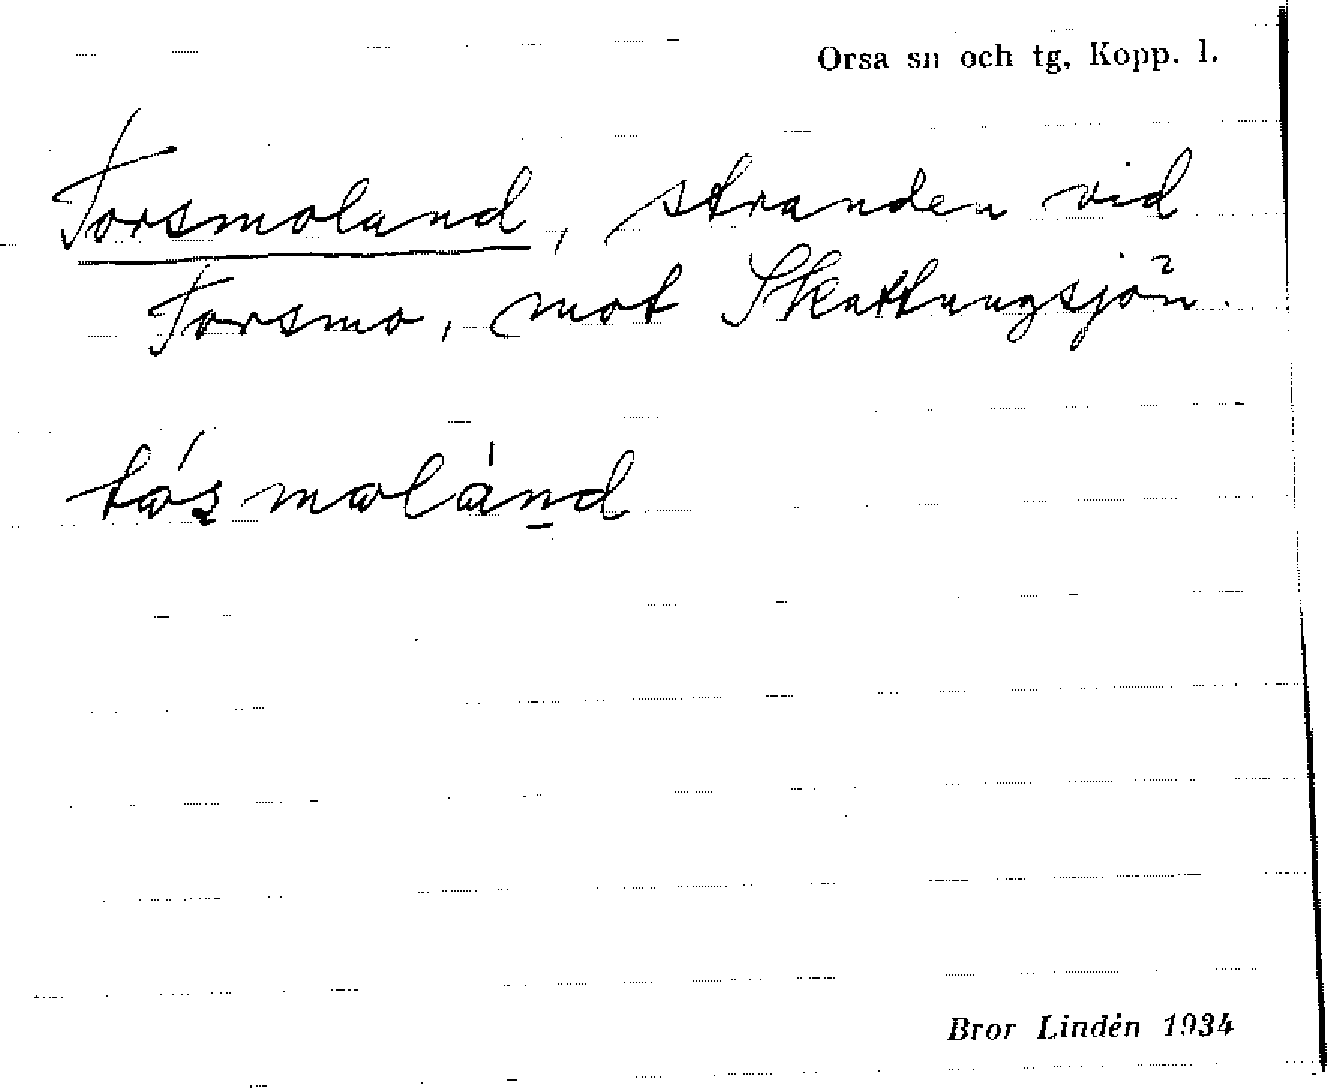 Orsa sn och tg, Kopp. l.
Torsmoland, stranden vid
Torsmo, mot Skattungsjön.
Bror Lindén 1934